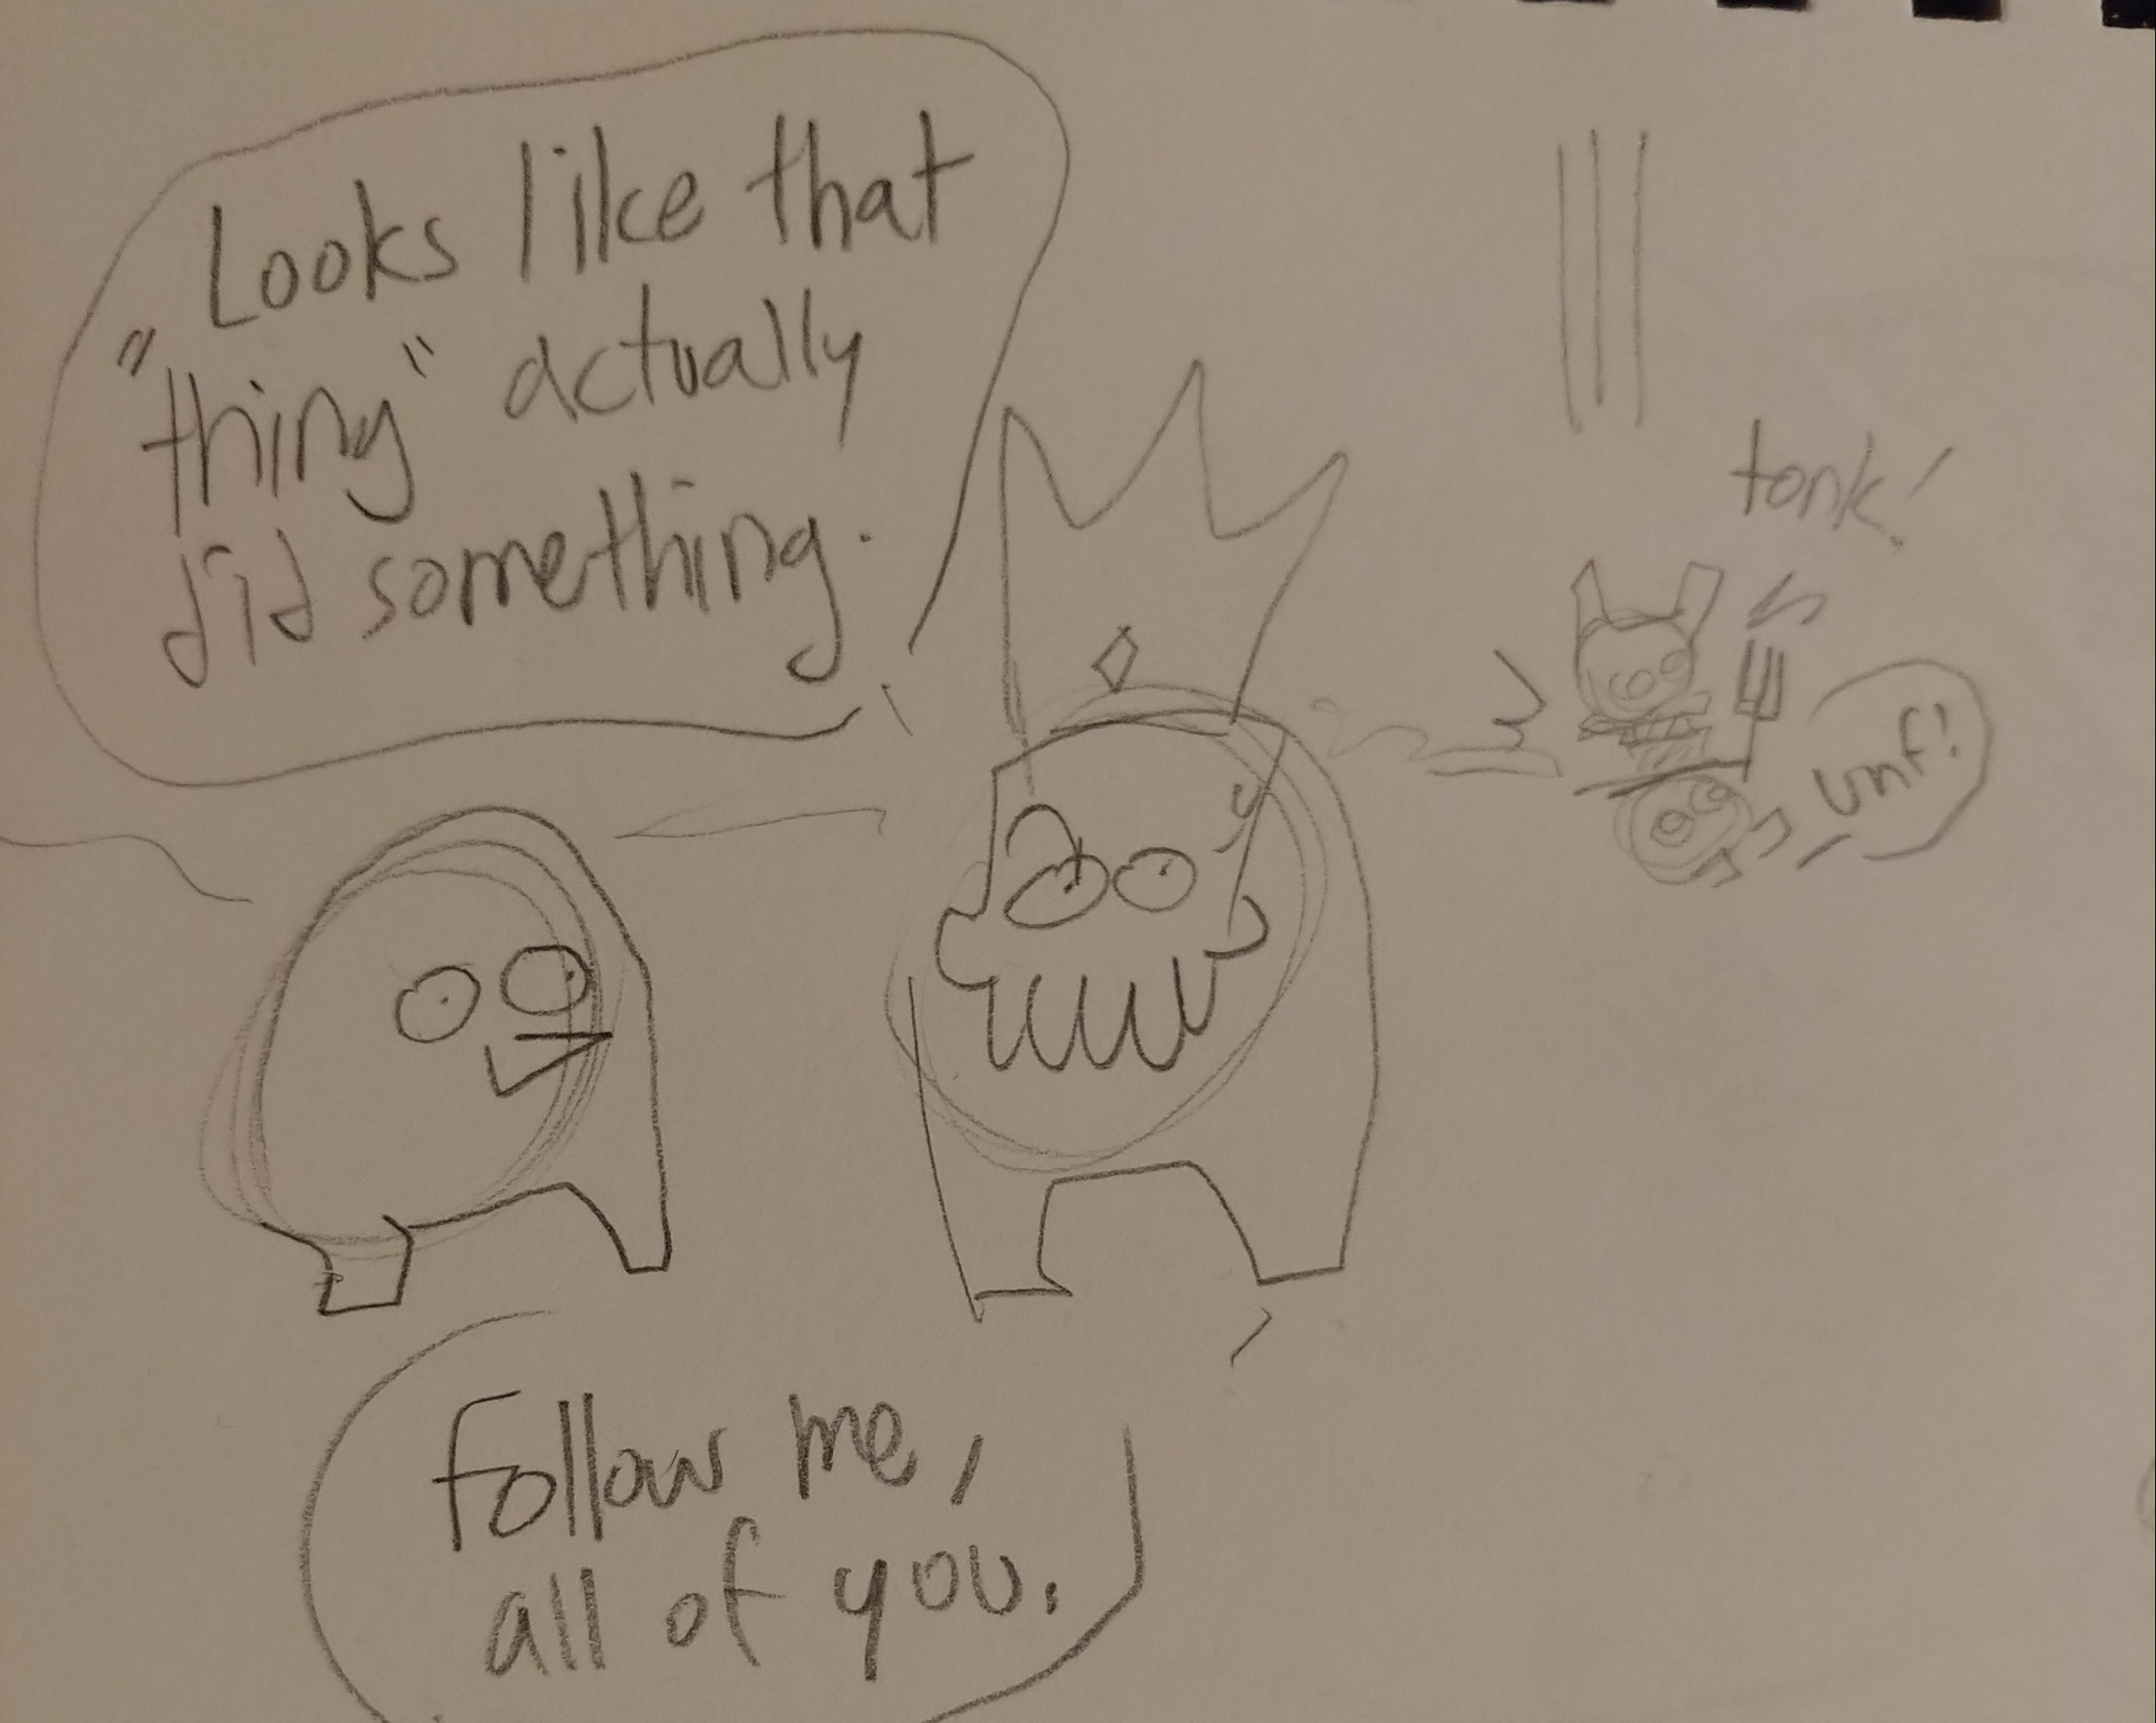 Looks like that
"thing" actually
did something.
tonk!
unf!
Follow me,
all of you.